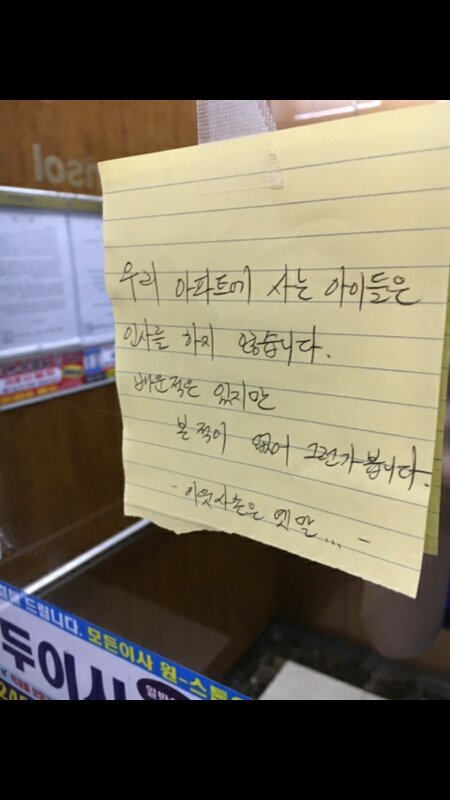 nsol
우리 아파트에 사는 아이들은
인사를 하지 않습니다.
배운적은 있지만
본 적이 없어 그런가봅니다.
- 이웃사촌은 옛말.... -
해 드립니다. 모든이사 원-스톱
두이사